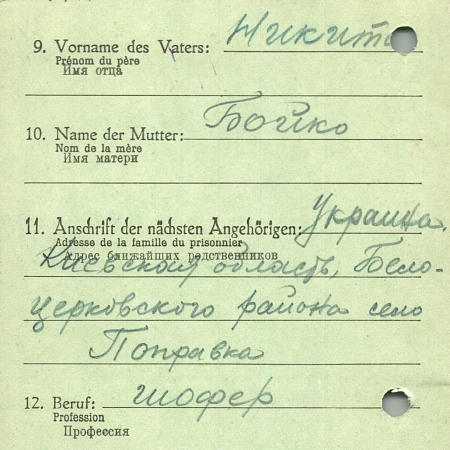 9. Vorname des Vaters: Никита
Prénom du père
Имя отца
10. Name der Mutter: Бойко
Nom de la mère
Имя матери
11. Anschrift der nächsten Angehörigen: Украина,
Adresse de la famille du prisonnier
Адрес ближайших родственников
Киевская область, Бело-
церковского района село
Поправка
12. Beruf: шофер
Profession
Профессия